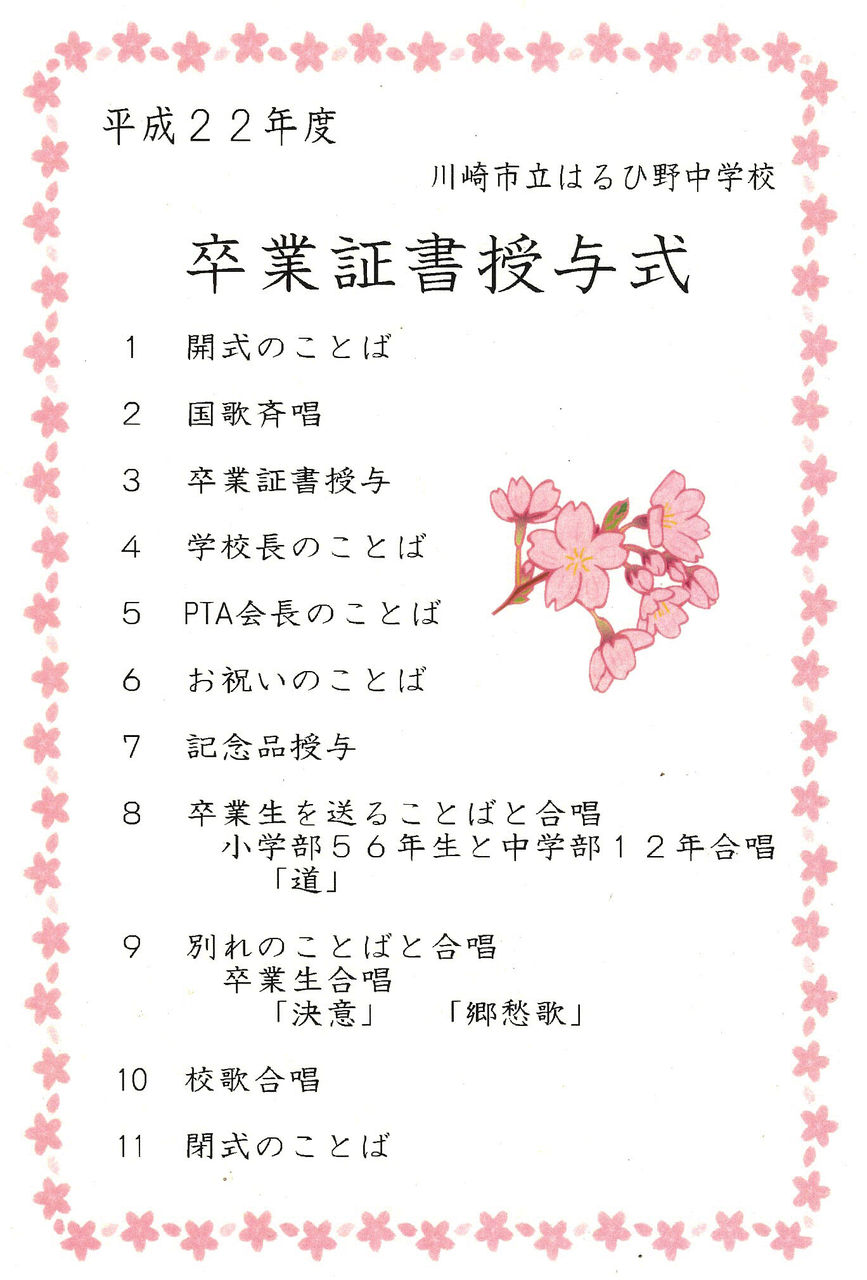 平成２２年度
川崎市立はるひ野中学校
卒業証書授与式
1 開式のことば
2 国歌斉唱
3 卒業証書授与
4 学校長のことば
5 PTA会長のことば
6 お祝いのことば
7 記念品授与
8 卒業生を送ることばと合唱
小学部５６年生と中学部１２年合唱
「道」
9 別れのことばと合唱
卒業生合唱
「決意」 「郷愁歌」
10 校歌合唱
11 閉式のことば